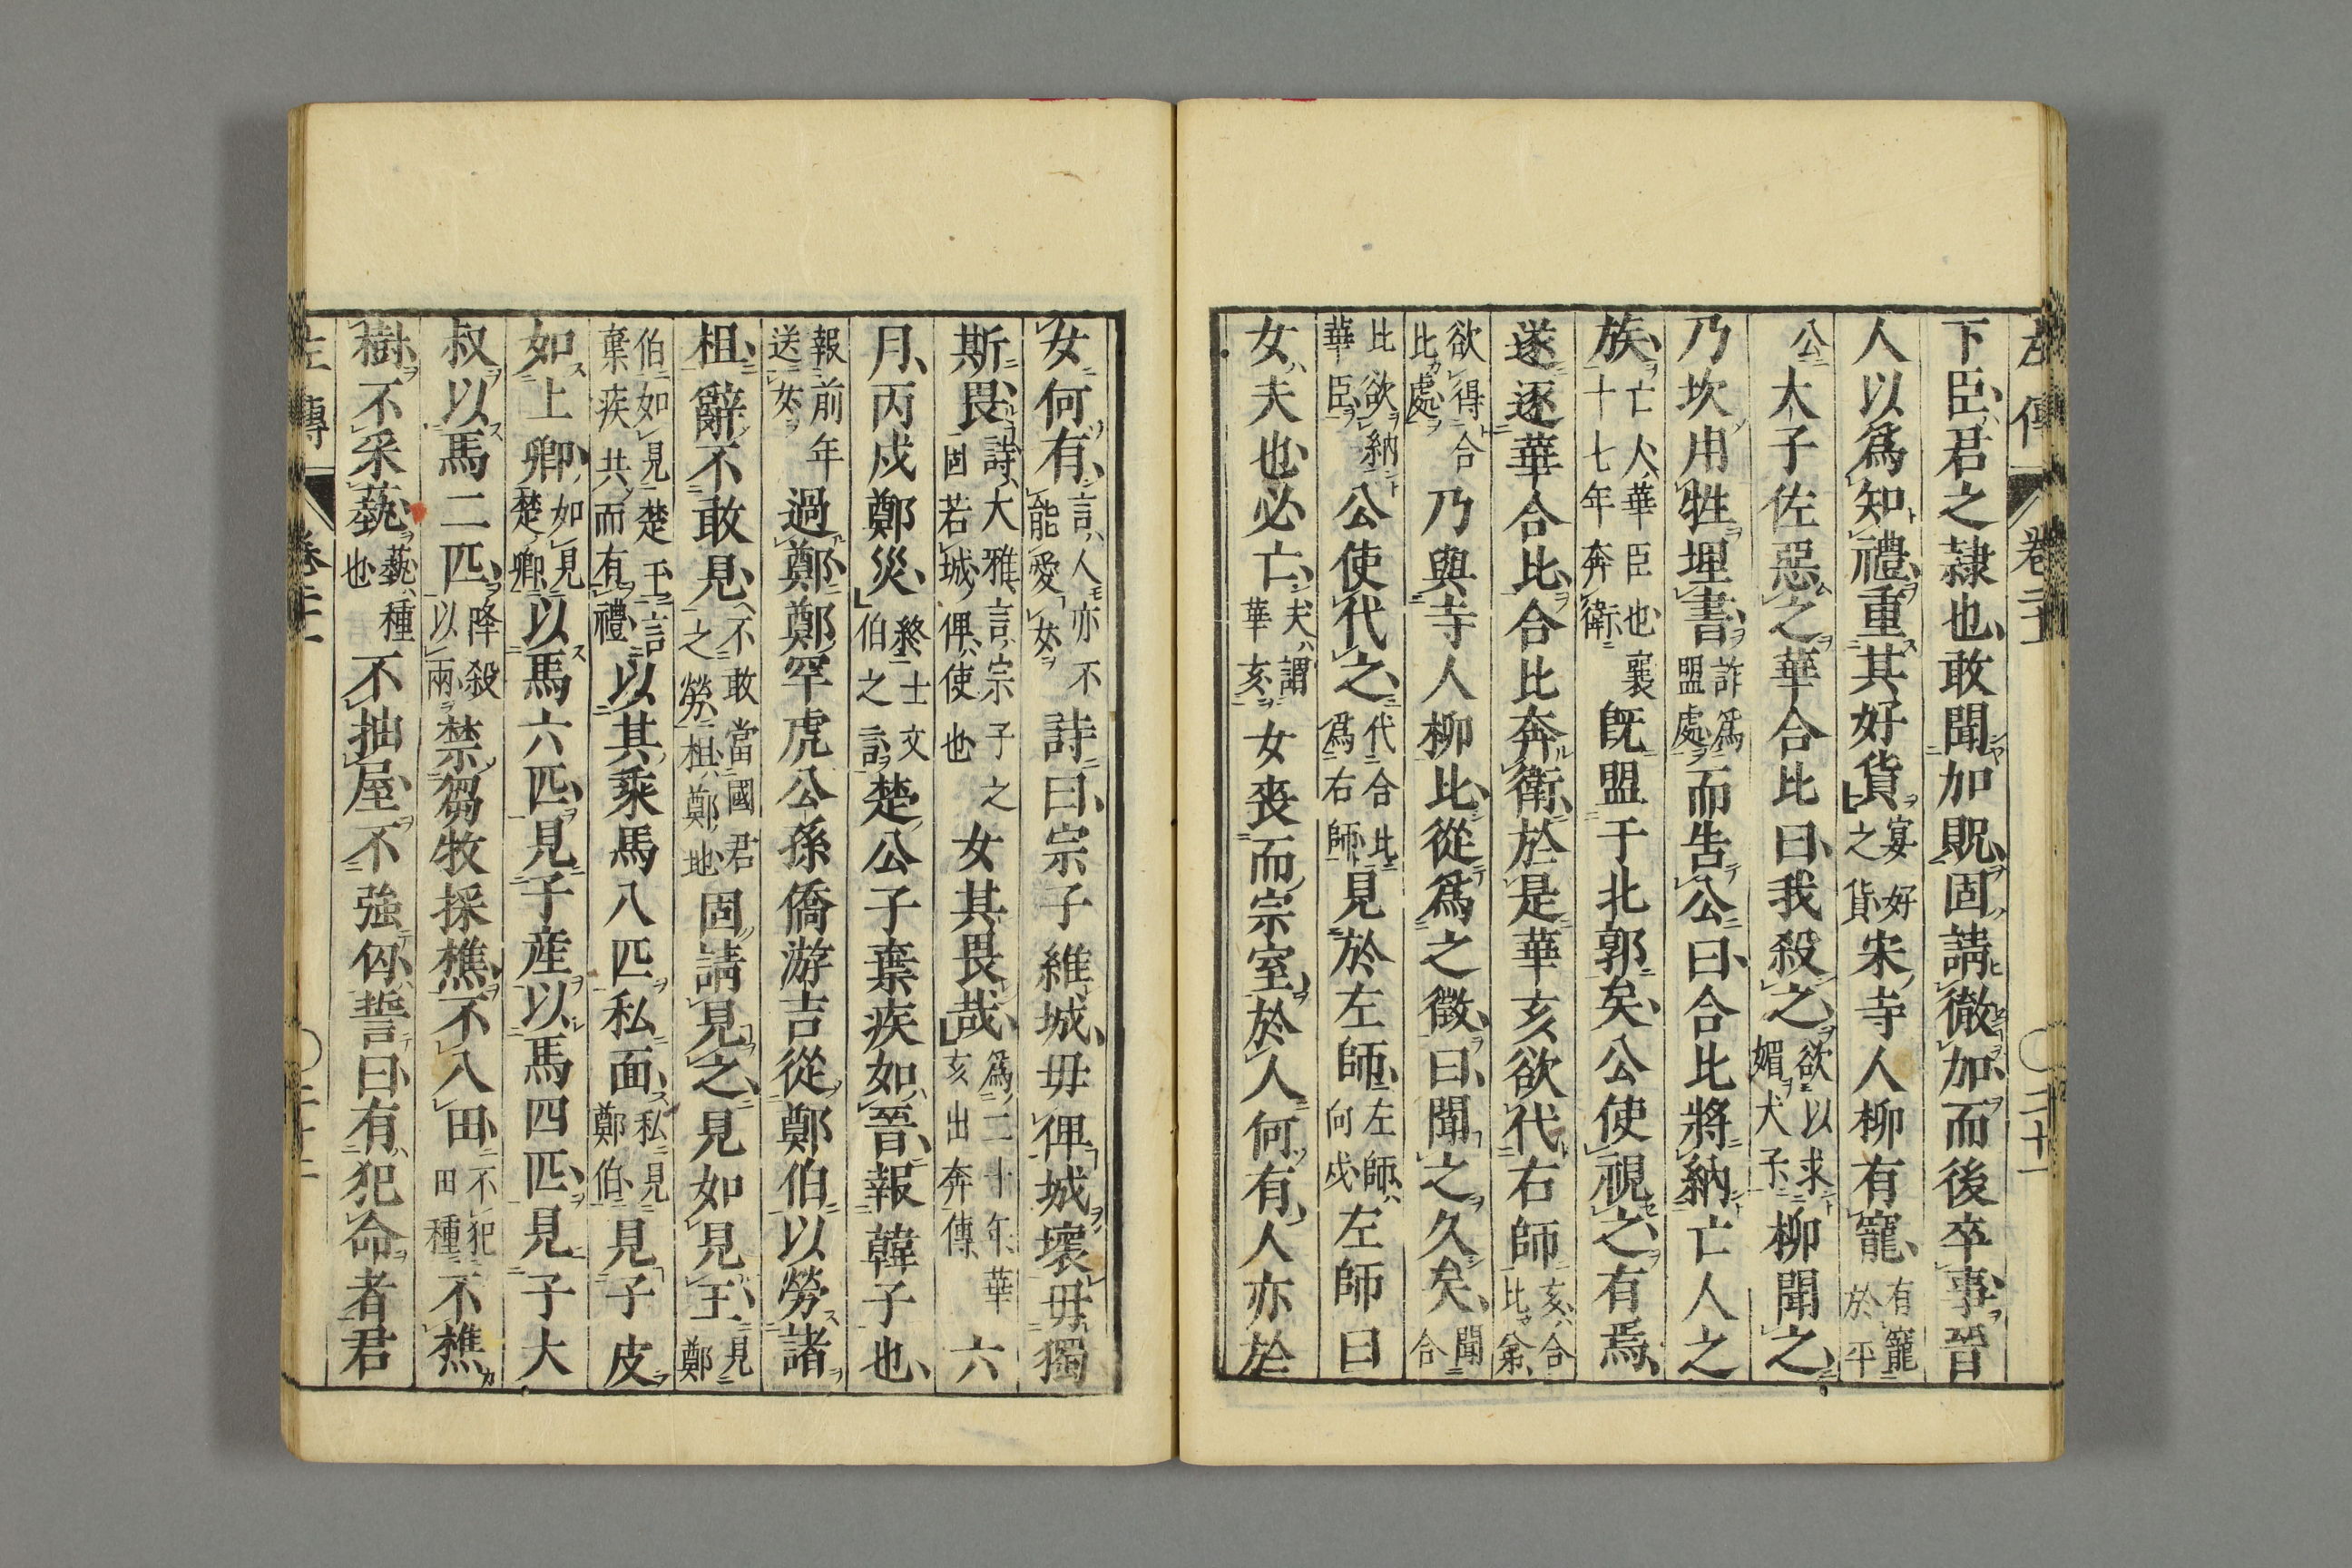 左傳 卷二十一 〇二十一
下臣君之隷也敢聞加貺固請徹加而後卒事晉
人以爲知禮重其好貨宴好之貨宋寺人柳有寵有寵於平
公大子佐惡之華合比曰我殺之欲以求媚大子柳聞之
乃坎用牲埋書詐爲盟處而告公曰合比將納亡人之
族亡人華臣也襄十七年奔衛既盟于北郭矣公使視之有焉
遂逐華合比合比奔衛於是華亥欲代右師亥合比弟
欲得合比處乃與寺人柳比從爲之徵曰聞之久矣聞合
比欲納華臣公使代之代合比爲右師見於左師左師何戍左師曰
女夫也必亡夫謂華亥女喪而宗室於人何有人亦於
女何有言人亦不能愛女詩曰宗子維城毋俾城壞毋獨
斯畏詩大雅言宗子之固若城俾使也女其畏哉爲二十年華亥出奔傳六
月丙戌鄭災終士文伯之言楚公子棄疾如晉報韓子也
報前年送女過鄭鄭罕虎公孫僑游吉從鄭伯以勞諸
柤辭不敢見不敢當國君之勞柤鄭地固請見之見如見王見鄭
伯如見楚王言棄疾共而有禮以其乘馬八匹私面私見鄭伯見子皮
如上卿如見楚卿以馬六匹見子産以馬四匹見子大
叔以馬二匹降殺以兩禁芻牧採樵不入田不犯田種不樵
樹不采蓺蓺種也不抽屋不強匄誓曰有犯命者君
左傳 卷二十一 〇二十二